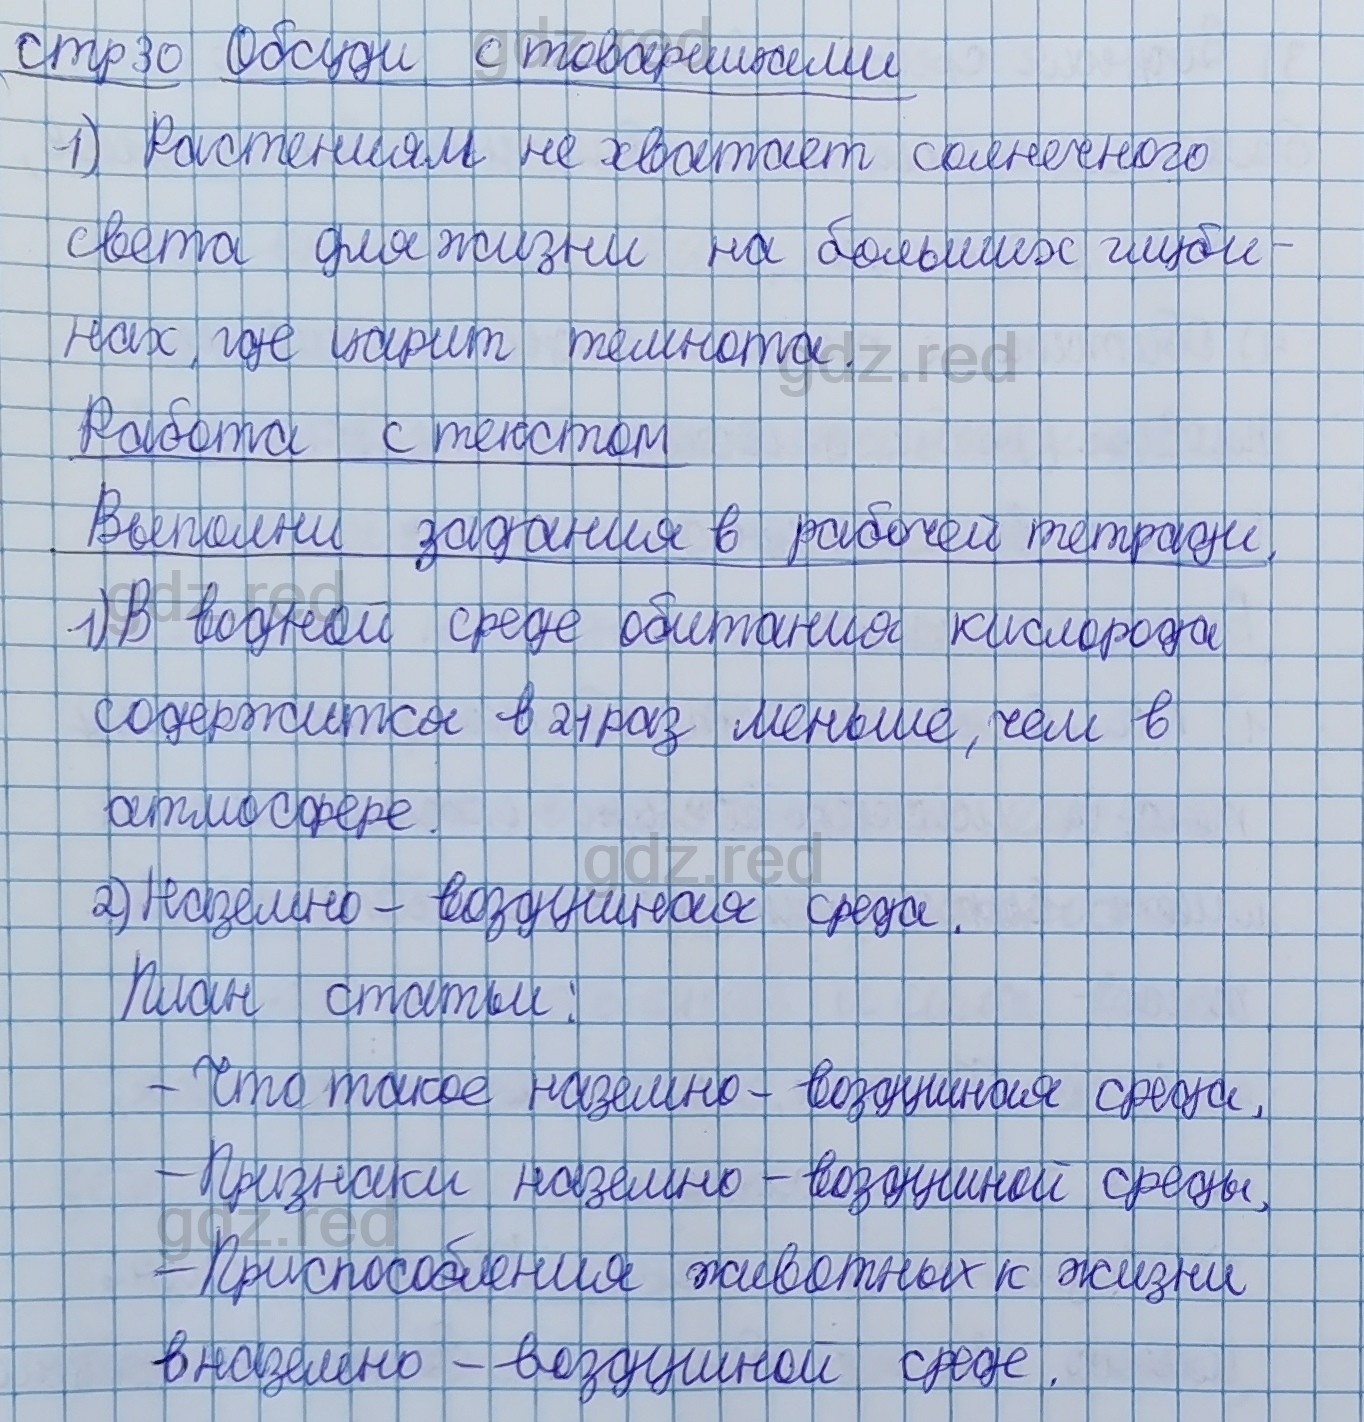 стр 30 Обсуди с товарешьами
1) Растениям не хватает солнечного
света для жизни на больших глуби-
нах, где царит темнота.
gdz.red
Работа с текстом
Выполни задания в рабочей тетради.
gdz.red
1) В водной среде обитания кислорода
содержится в 21 раз меньше, чем в
атмосфере.
gdz.red
2) Наземно - воздушная среда.
План статьи:
- Что такое наземно - воздушная среда.
- Признаки наземно - воздушной среды,
gdz.red
- Приспособления животных к жизни
в наземно - воздушной среде.